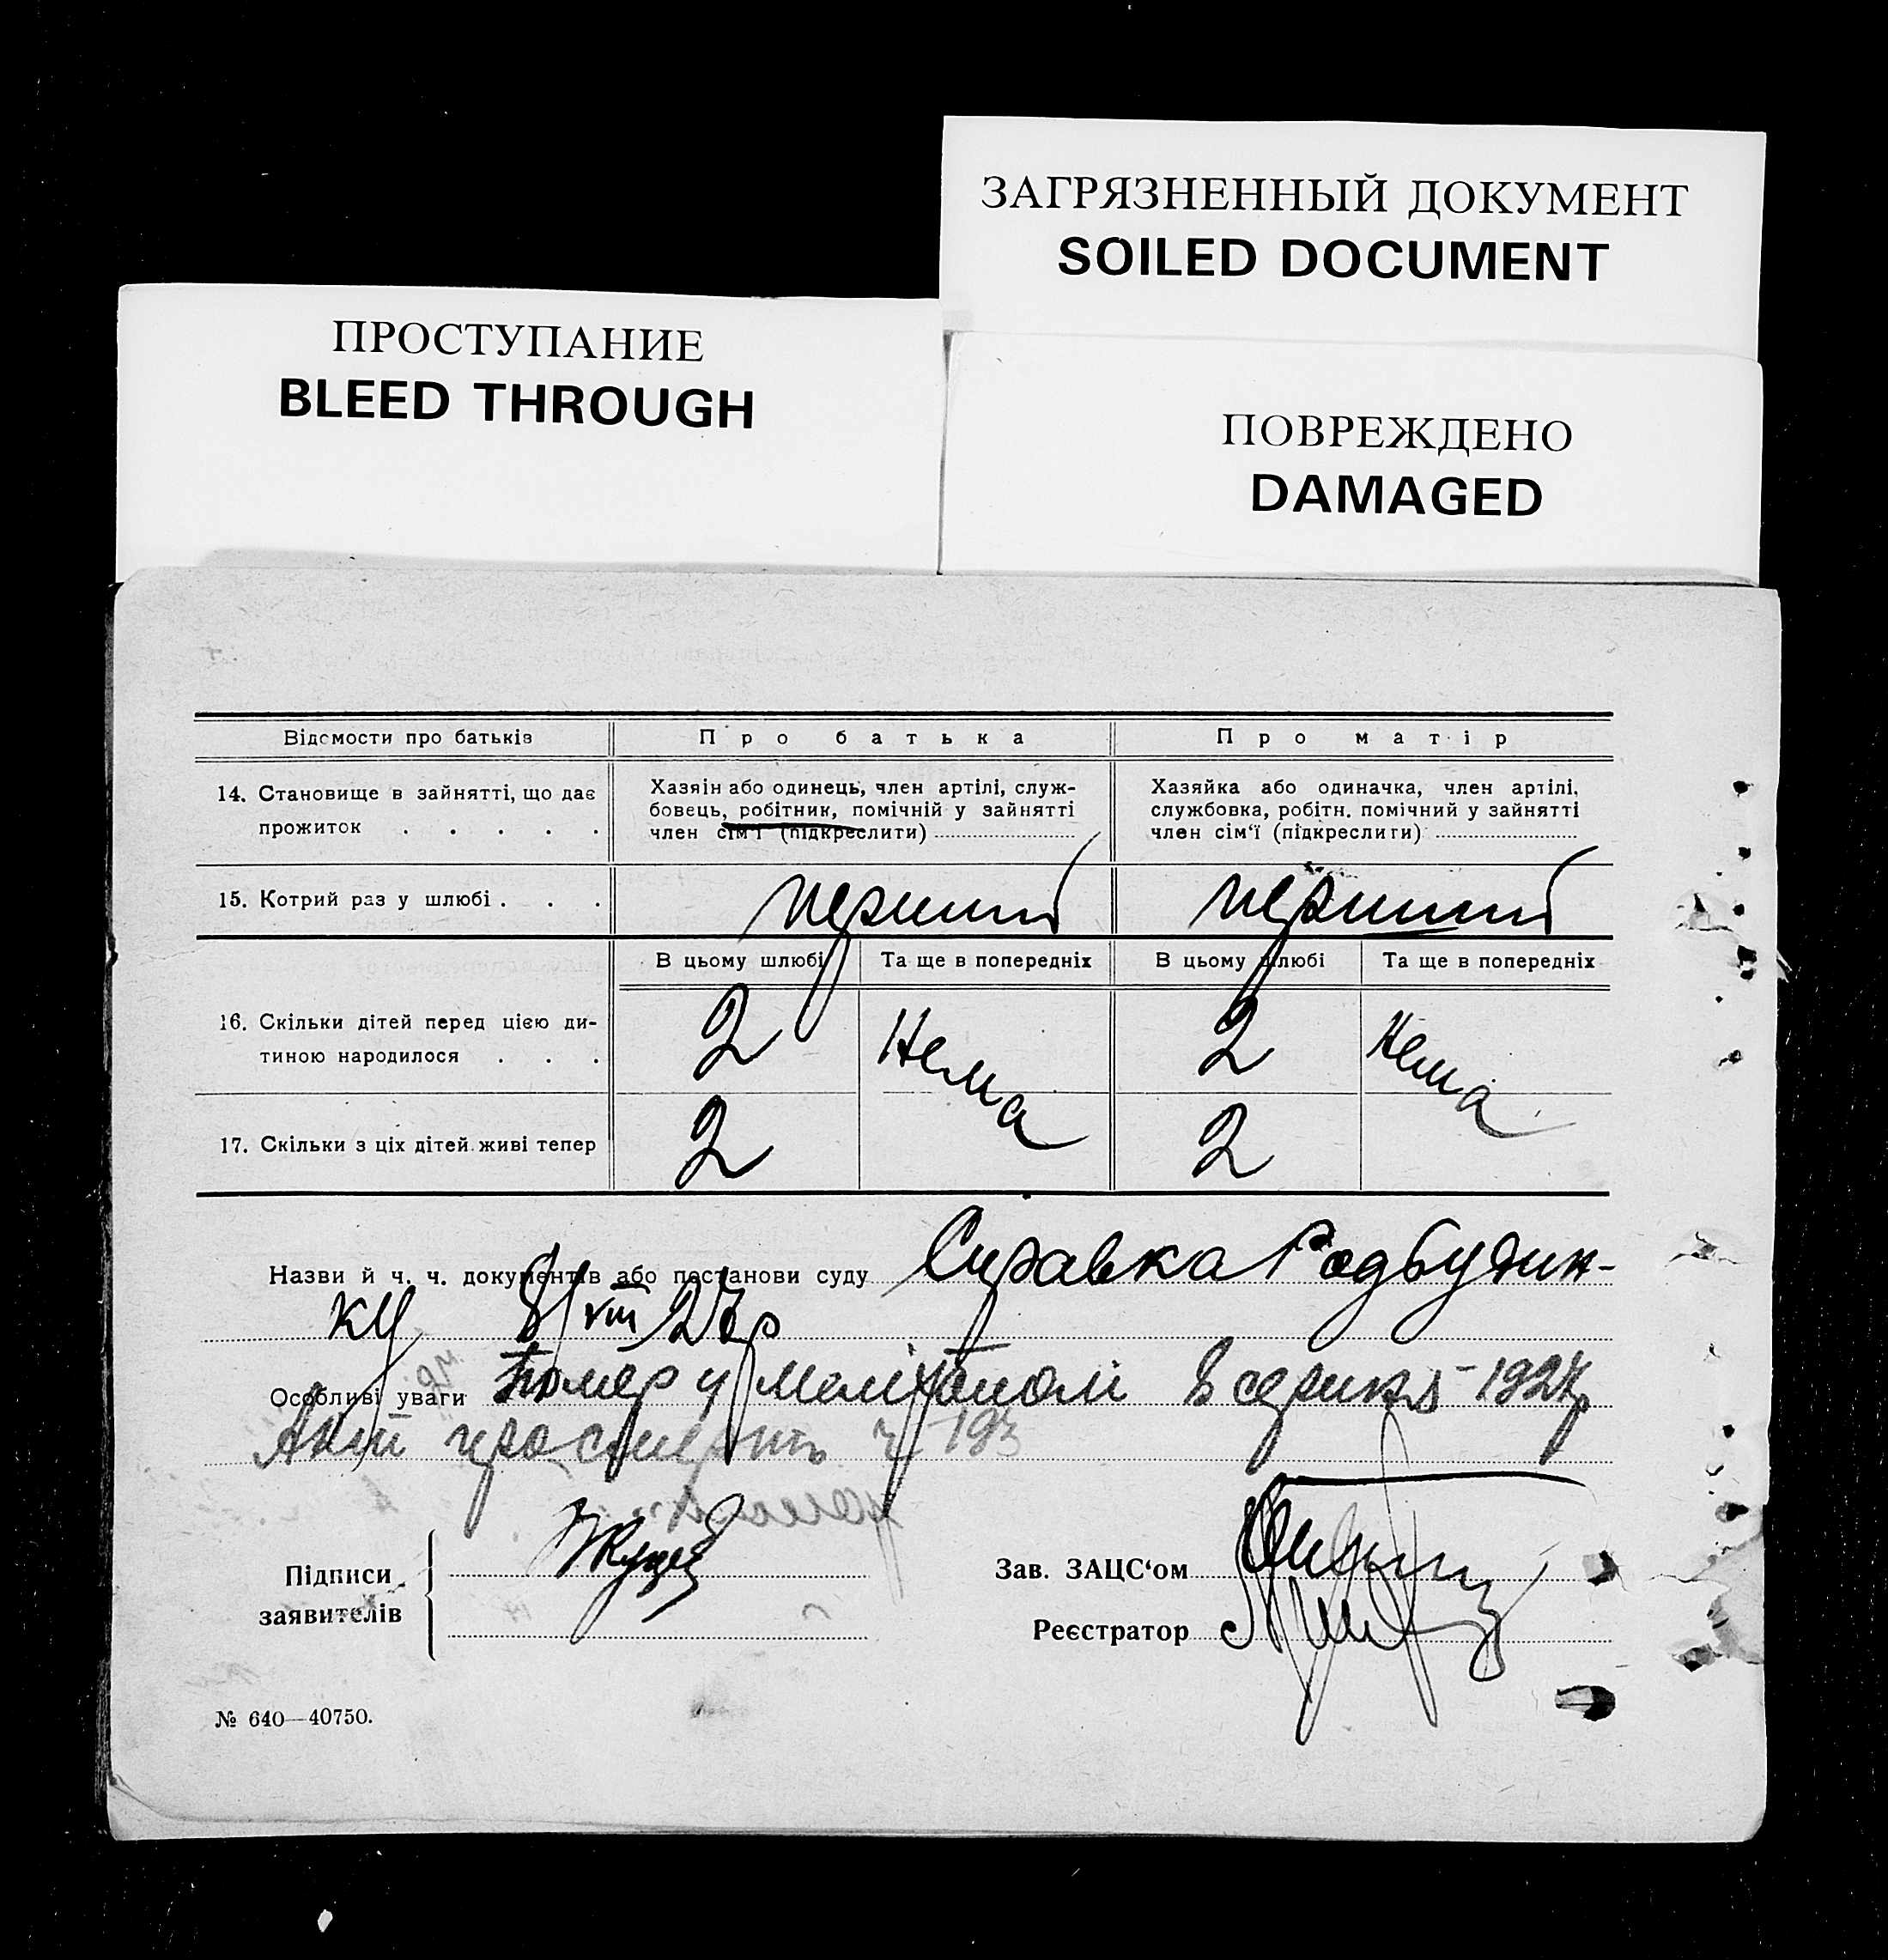 ЗАГРЯЗНЕННЫЙ ДОКУМЕНТ
SOILED DOCUMENT
ПРОСТУПАНИЕ
BLEED THROUGH
ПОВРЕЖДЕНО
DAMAGED
Відомости про батьків
Про батька
Про матір
14. Становище в зайнятті, що дає
прожиток . . . . .
Хазяін або одинець, член артілі, служ-
бовець, робітник, помічній у зайнятті
член сім'ї (підкреслити)
Хазяйка або одиначка, член артілі,
службовка, робітн. помічний у зайнятті
член сім'ї (підкреслити)
15. Котрий раз у шлюбі . . .
перший
перший
В цьому шлюбі
Та ще в попередніх
В цьому шлюбі
Та ще в попередніх
16. Скільки дітей перед цією ди-
тиною народилося . . .
2
Нема
2
Нема
17. Скільки з ціх дітей живі тепер
2
2
Назви й ч. ч. документів або постанови суду Справка Родбудин-
ку 8/VIII 27р
Особливі уваги Помер у Мелітополі 8 серпня 1927р
Акт про смерть ч 193
Підписи
заявителів
Зав. ЗАЦС'ом
Реєстратор
№ 640—40750.